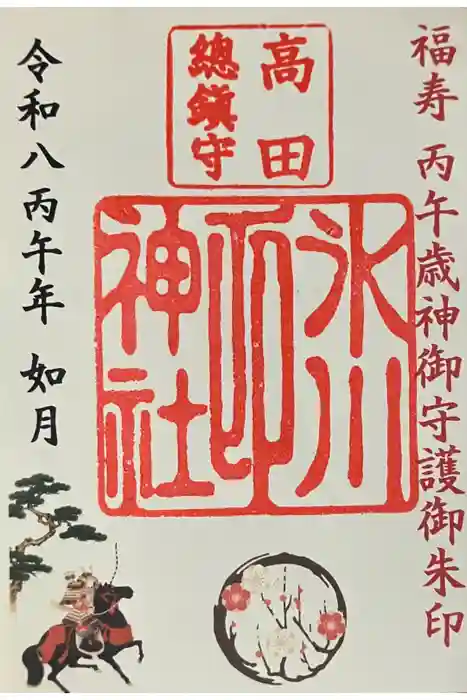 福寿 丙午歳神御守護御朱印
高田
總鎮守
氷川
印
神社
令和八丙午年 如月